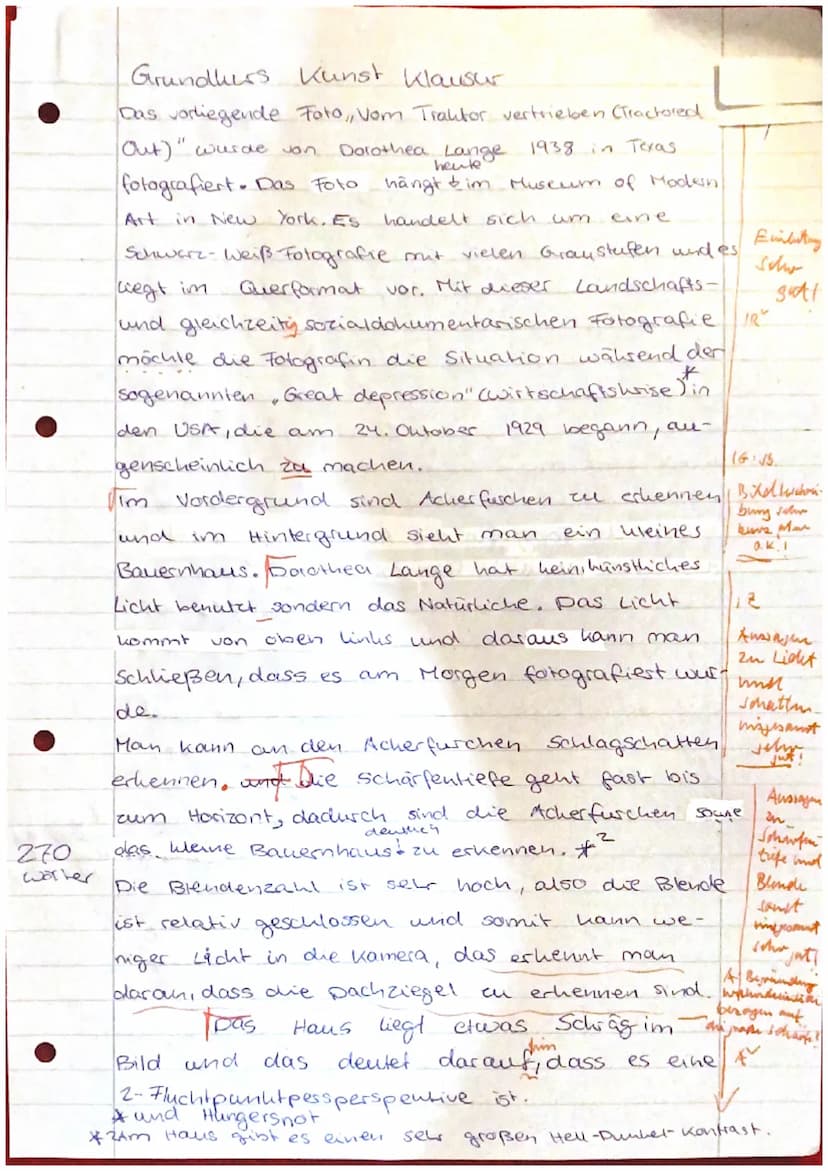 Grundkurs Kunst Klausur
Das vorliegende Foto „Vom Traktor vertrieben (Tractored
Out)" wurde von Dorothea Lange 1938 in Texas
heute
fotografiert. Das Foto hängt im Museum of Modern
Art in New York. Es handelt sich um eine
Schwarz-Weiß-Fotografie mit vielen Graustufen und es
liegt im Querformat vor. Mit dieser Landschafts-
und gleichzeitig sozialdokumentarischen Fotografie
möchte die Fotografin die Situation während der
sogenannten „Great depression" (Wirtschaftskrise)* in
den USA, die am 24. Oktober 1929 begann, au-
genscheinlich zu machen.
Im Vordergrund sind Ackerfurchen zu erkennen
und im Hintergrund sieht man ein kleines
Bauernhaus. Dorothea Lange hat kein künstliches
Licht benutzt sondern das Natürliche. Das Licht
kommt von oben links und daraus kann man
schließen, dass es am Morgen fotografiert wur-
de.
Man kann an den Ackerfurchen Schlagschatten
erkennen. und Die Schärfentiefe geht fast bis
zum Horizont, dadurch sind die Ackerfurchen sowie
deutlich
das kleine Bauernhaus zu erkennen. *2
270
Wörter
Die Blendenzahl ist sehr hoch, also die Blende
ist relativ geschlossen und somit kann we-
niger Licht in die Kamera, das erkennt man
daran, dass die Dachziegel zu erkennen sind.
Das Haus liegt etwas Schräg im
hin
Bild und das deutet darauf, dass es eine
2-Fluchtpunktpessperspektive ist.
* und Hungersnot
*2 Am Haus gibt es einen sehr großen Hell-Dunkel-Kontrast.
Einleitung
sehr
gut!
1R
Bildbeschrei-
bung sehr
kurz, aber
o.k.!
1Z
Aussagen
zu Licht
und
Schatten
insgesamt
sehr
gut!
Aussagen
zu
Schärfen-
tiefe und
Blende
sonst
insgesamt
sehr gut!
A Begründung
bezogen auf
A